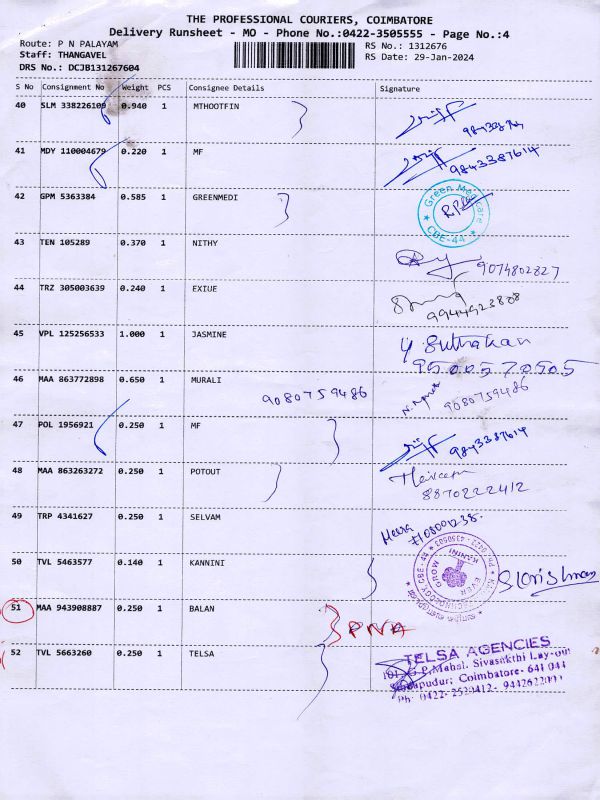 THE PROFESSIONAL COURIERS, COIMBATORE
Delivery Runsheet - MO - Phone No.:0422-3505555 - Page No.:4
Route: P N PALAYAM
RS No.: 1312676
Staff: THANGAVEL
RS Date: 29-Jan-2024
DRS No.: DCJB131267604
S No Consignment No Weight PCS Consignee Details Signature
40 SLM 338226109 0.940 1 MTHOOTFIN
41 MDY 110004679 0.220 1 MF 9843387614
42 GPM 5363384 0.585 1 GREENMEDI
Green Medicare
CBE-44
43 TEN 105289 0.370 1 NITHY 9074802827
44 TRZ 305003639 0.240 1 EXIUE
9944923808
45 VPL 125256533 1.000 1 JASMINE
9500570505
46 MAA 863772898 0.650 1 MURALI
9080759486 9080759486
47 POL 1956921 0.250 1 MF 9843387614
48 MAA 863263272 0.250 1 POTOUT
8870222412
49 TRP 4341627 0.250 1 SELVAM
50 TVL 5463577 0.140 1 KANNINI
KANNINI
GROW EVER
51 MAA 943908887 0.250 1 BALAN
PNA
52 TVL 5663260 0.250 1 TELSA
TELSA AGENCIES
G.P.Mahal. Sivasakthi Lay-out
Coimbatore- 641 044
Ph: 0422- 2520412-